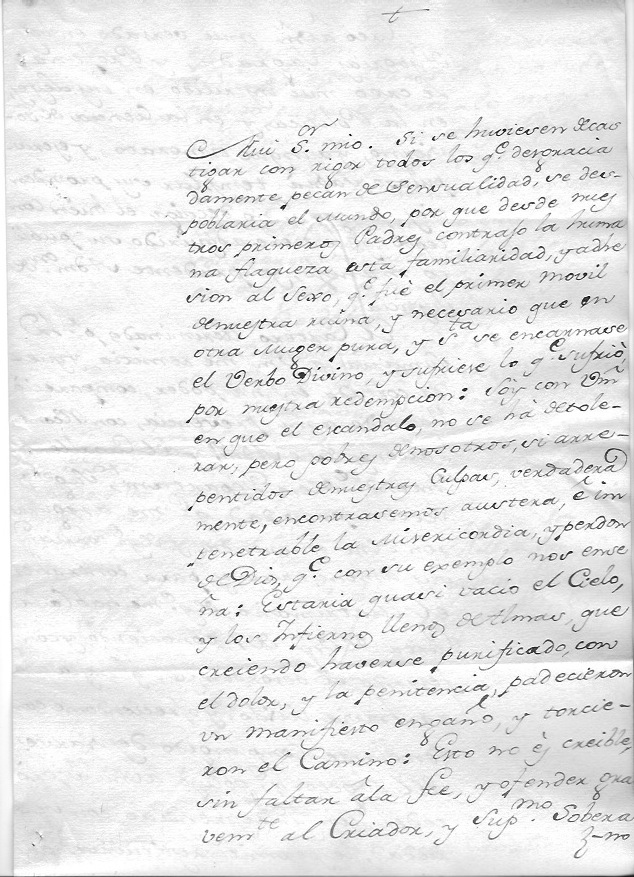 Mui S.or mio. Si se huviesen de cas
tigar con rigor todos los q.e desgracia
damente pecan de sensualidad, se des-
poblaria el Mundo, por que desde nues
tros primeros Padres contrajo la huma
na flaqueza esta familiaridad, y adhe
sion al sexo, q.e fuè el primer movil
de nuestra ruina, y necesario que en
otra Muger pura, y s.ta se encarnase
el Verbo Divino, y sufriese lo q.e sufriò,
por nuestra redempcion: Soy con Vm
en que el escandalo, no se hà de tole-
rar, pero pobres de nosotros, si arre-
pentidos de nuestras Culpas, verdadera
mente, encontrasemos austera, è im
penetrable la Misericordia, y perdon
de Dios, q.e con su exemplo nos ense
ña: Estaria quasi vacio el Cielo,
y los Infiernos llenos de Almas, que
creiendo haverse purificado, con
el dolor, y la penitencia, padecieron
un manifiesto engaño, y torcie-
ron el Camino: Esto no es creible,
sin faltar à la fee, y ofender gra
vem.te al Criador, y sup.mo Sobera
no